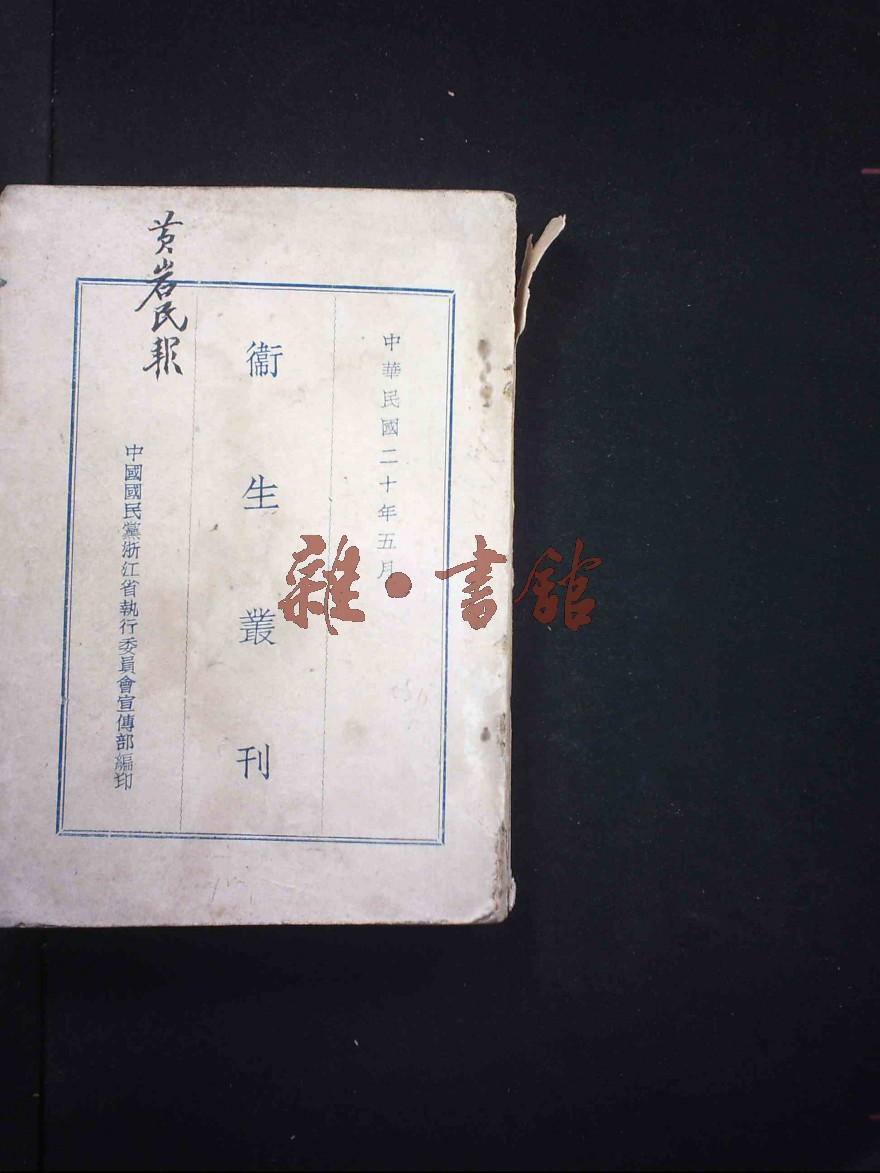 中華民國二十年五月
衞生叢刊
中國國民黨浙江省執行委員會宣傳部編印
黄岩民報
雜·書館